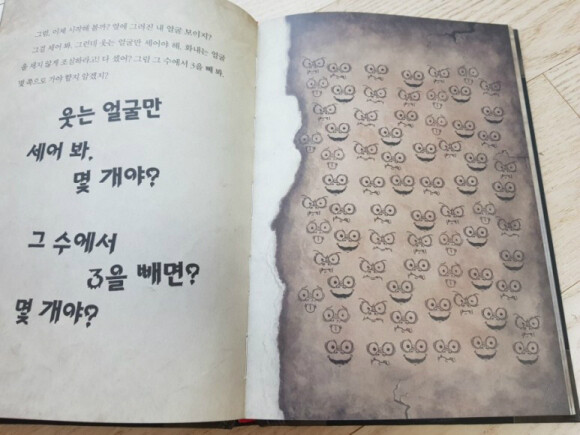 그럼, 이제 시작해 볼까? 옆에 그려진 내 얼굴 보이지?
그걸 세어 봐. 그런데 웃는 얼굴만 세어야 해. 화내는 얼굴
을 세지 않게 조심하라고! 다 셌어? 그럼 그 수에서 3을 빼 봐.
몇 쪽으로 가야 할지 알겠지?
웃는 얼굴만
세어 봐.
몇 개야?
그 수에서
3을 빼면?
몇 개야?